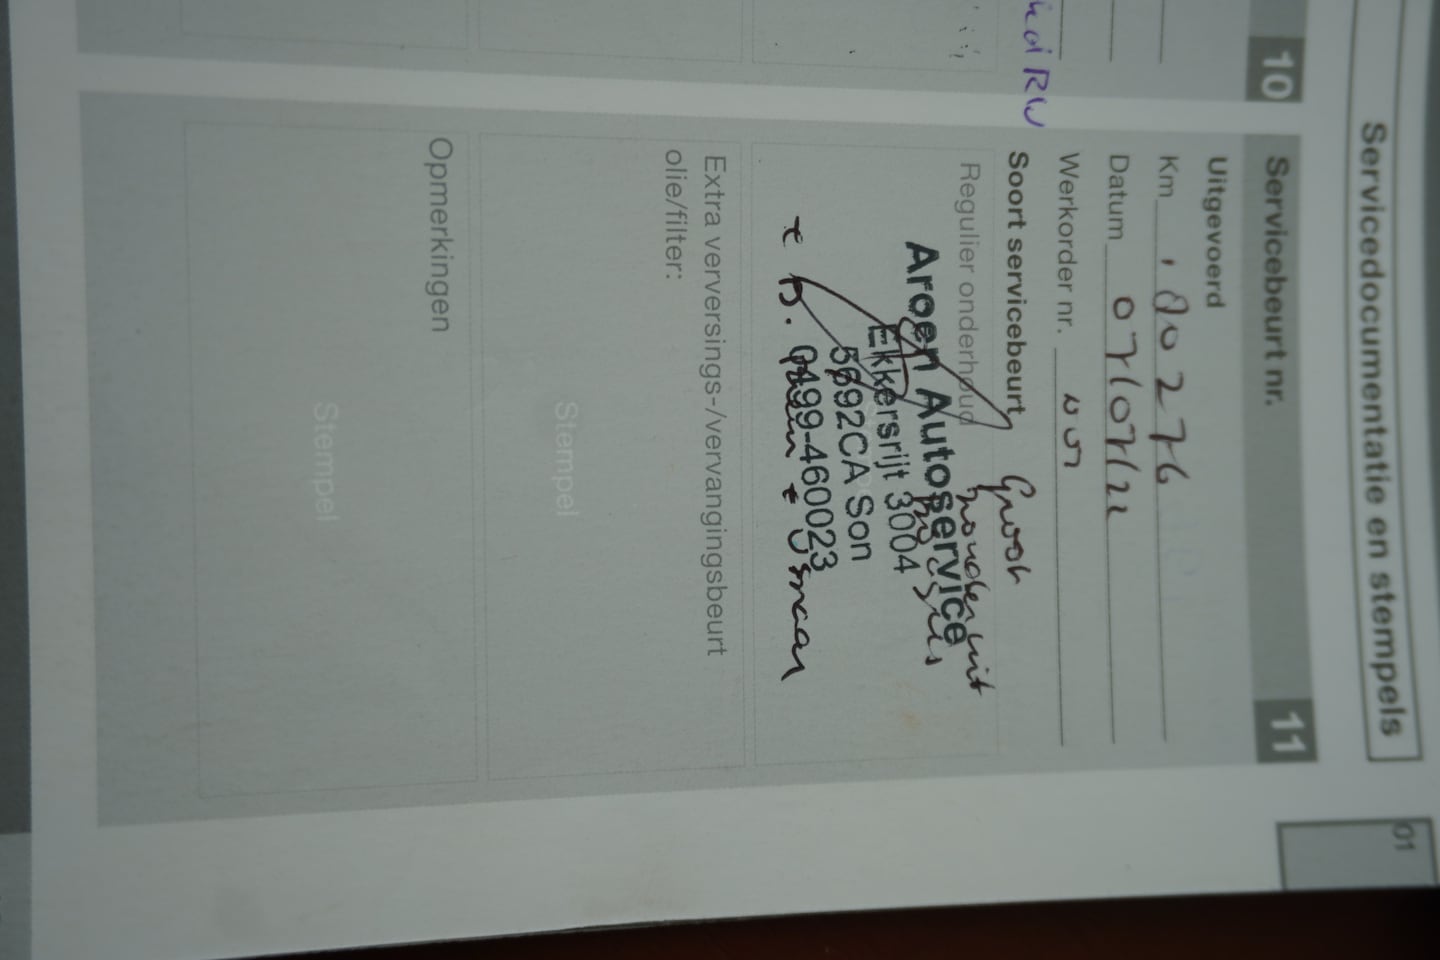 Servicedocumentatie en stempels
01
10
Servicebeurt nr.
11
Uitgevoerd
Km
Datum 07/07/22
Werkorder nr.
Soort servicebeurt
Groot
Regulier onderhoud
Aroen Autoservice
Ekkersrijt 3004
5692CA Son
0499-460023
Extra verversings-/vervangingsbeurt
olie/filter:
Stempel
Opmerkingen
Stempel
RW